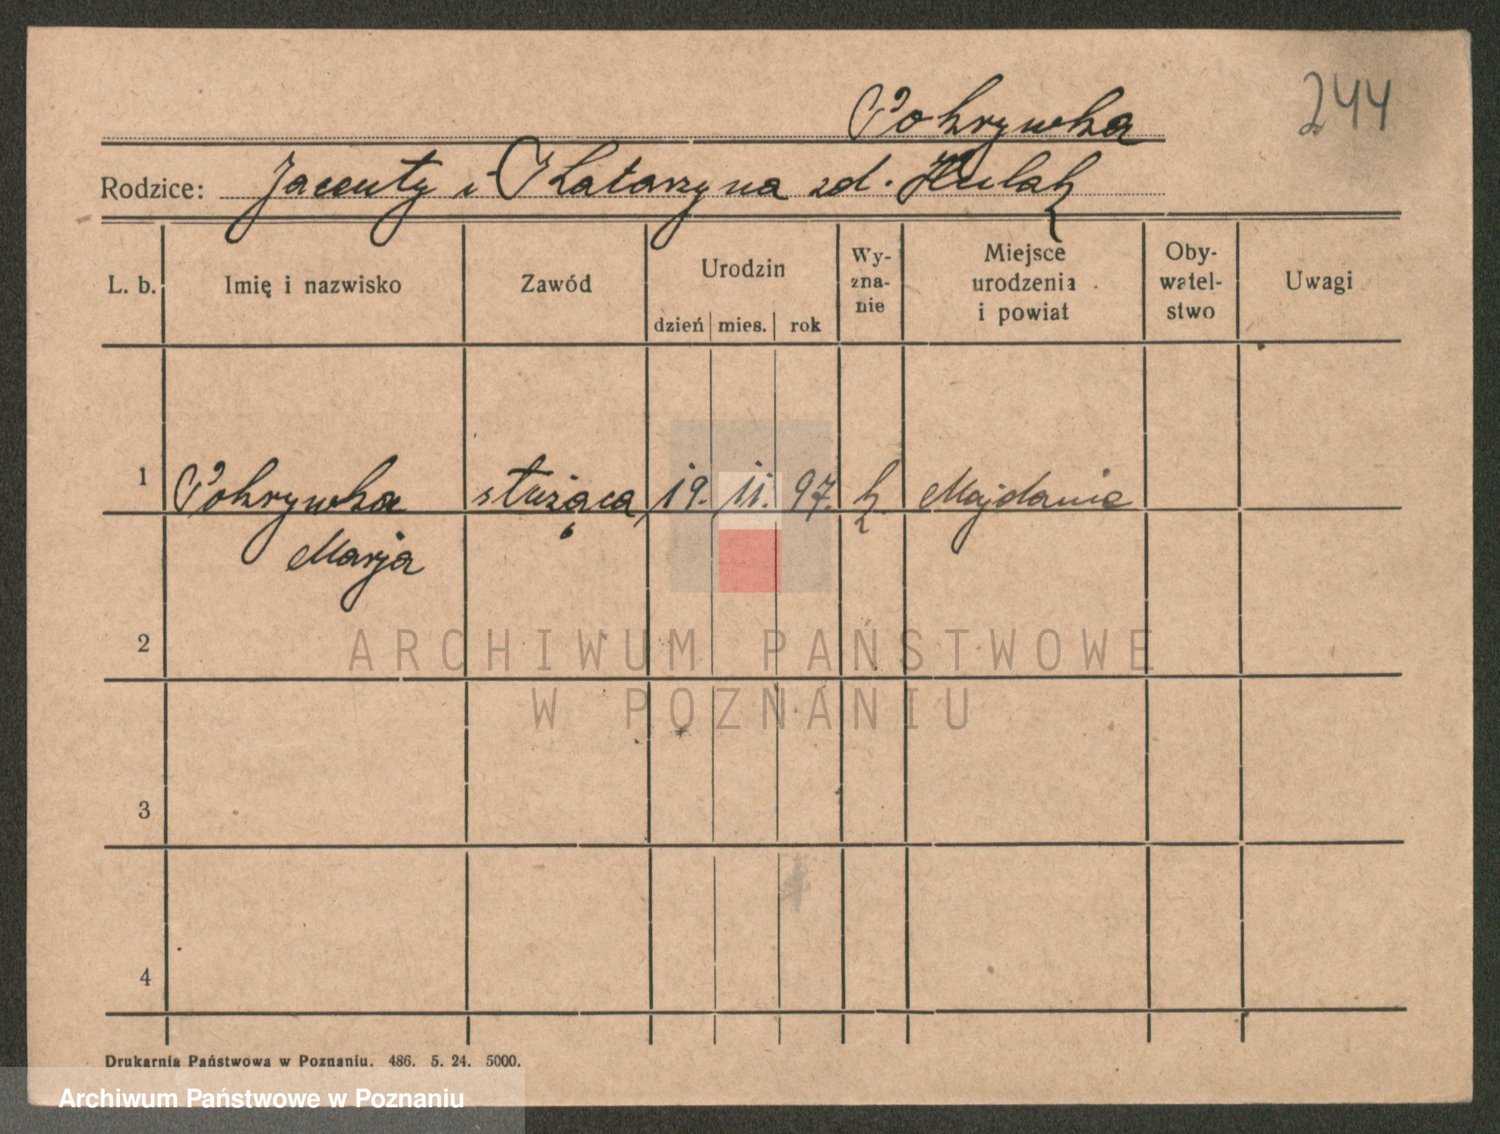 244
Pokrywka
Rodzice: Jacenty i Katarzyna zd. Kulak
L. b. Imię i nazwisko Zawód Urodzin dzień mies. rok Wy-zna-nie Miejsce urodzenia i powiat Oby-watel-stwo Uwagi
1 Pokrywka służąca 19. 11. 97. k. Majdanie
Marja
2
3
4
Drukarnia Państwowa w Poznaniu. 486. 5. 24. 5000.
ARCHIWUM PAŃSTWOWE
W POZNANIU
Archiwum Państwowe w Poznaniu